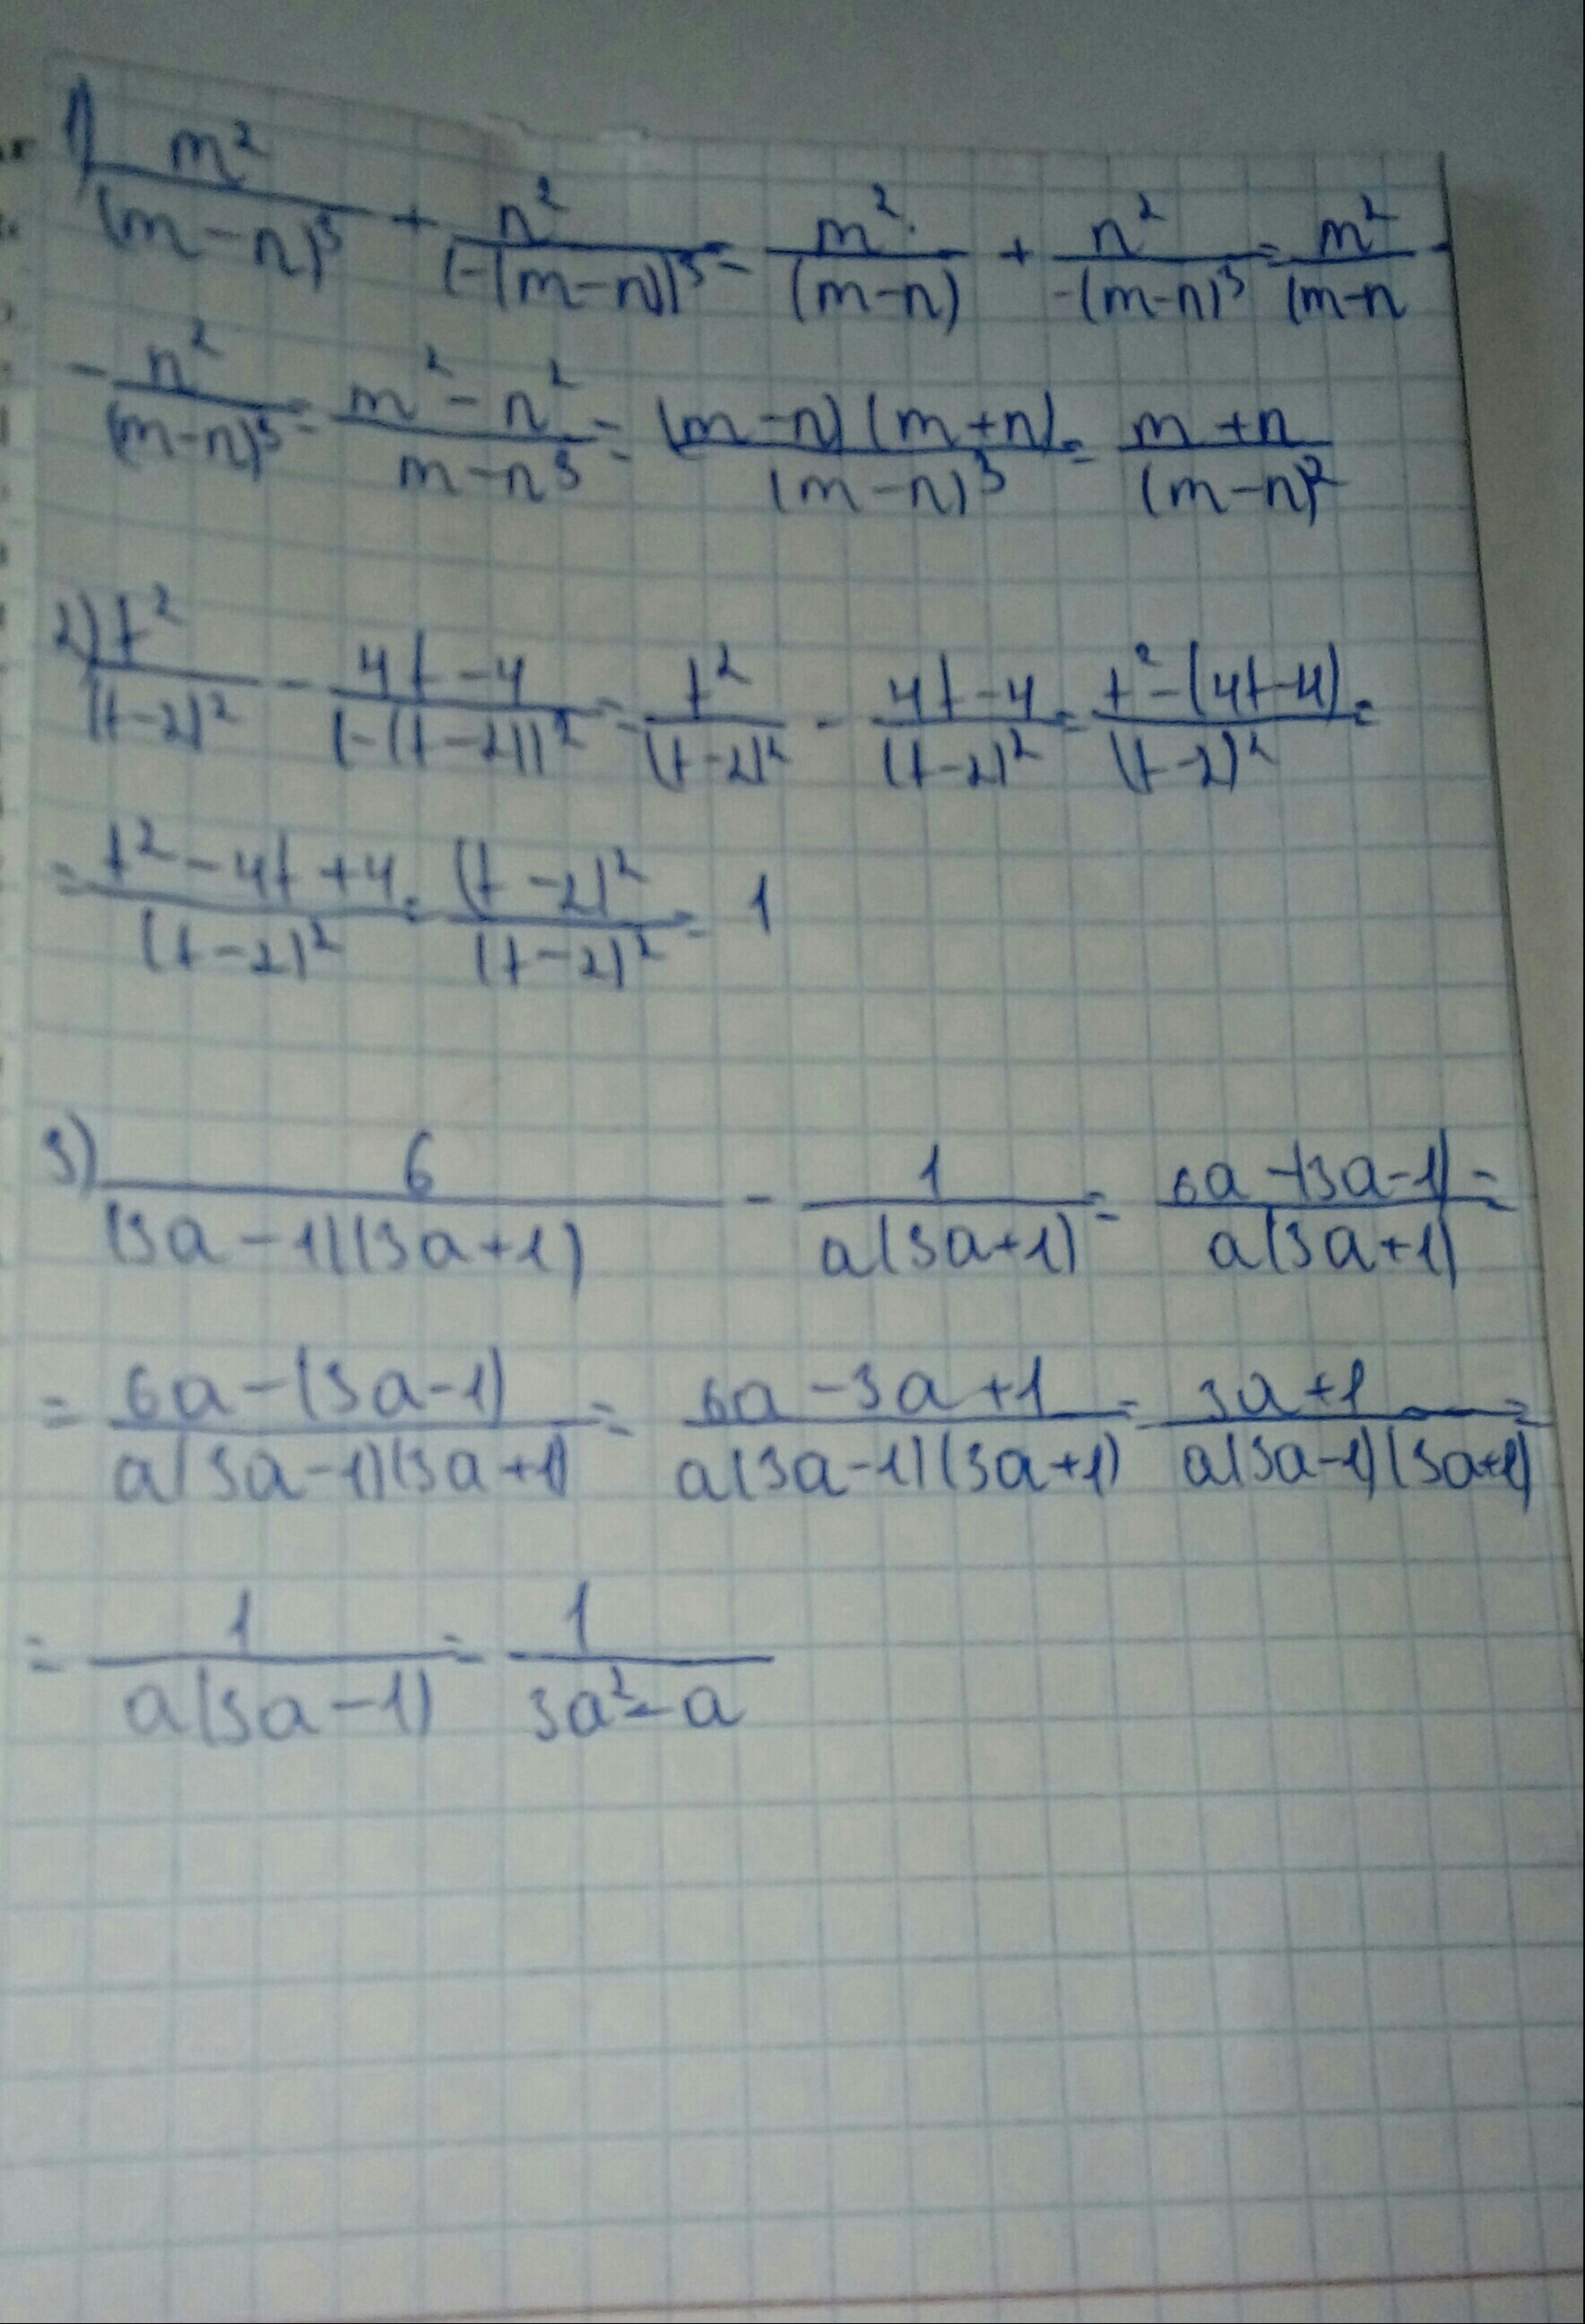 1) m²/(m-n)³ + n²/(-(m-n))³ = m²/(m-n) + n²/-(m-n)³ = m²/(m-n -
- n²/(m-n)³ = m²-n²/m-n³ = (m-n)(m+n)/(m-n)³ = m+n/(m-n)²
2) t²/(t-2)² - 4t-4/(-(t-2))² = t²/(t-2)² - 4t-4/(t-2)² = t²-(4t-4)/(t-2)² =
= t²-4t+4/(t-2)² = (t-2)²/(t-2)² = 1
3) 6/(3a-1)(3a+1) - 1/a(3a+1) = 6a-(3a-1)/a(3a+1) =
= 6a-(3a-1)/a(3a-1)(3a+1) = 6a-3a+1/a(3a-1)(3a+1) = 3a+1/a(3a-1)(3a+1) =
= 1/a(3a-1) = 1/3a²-a